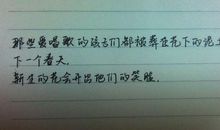 那些爱唱歌的孩子们都被葬在花下的泥土
下一个春天.
新生的花会开出他们的笑脸.